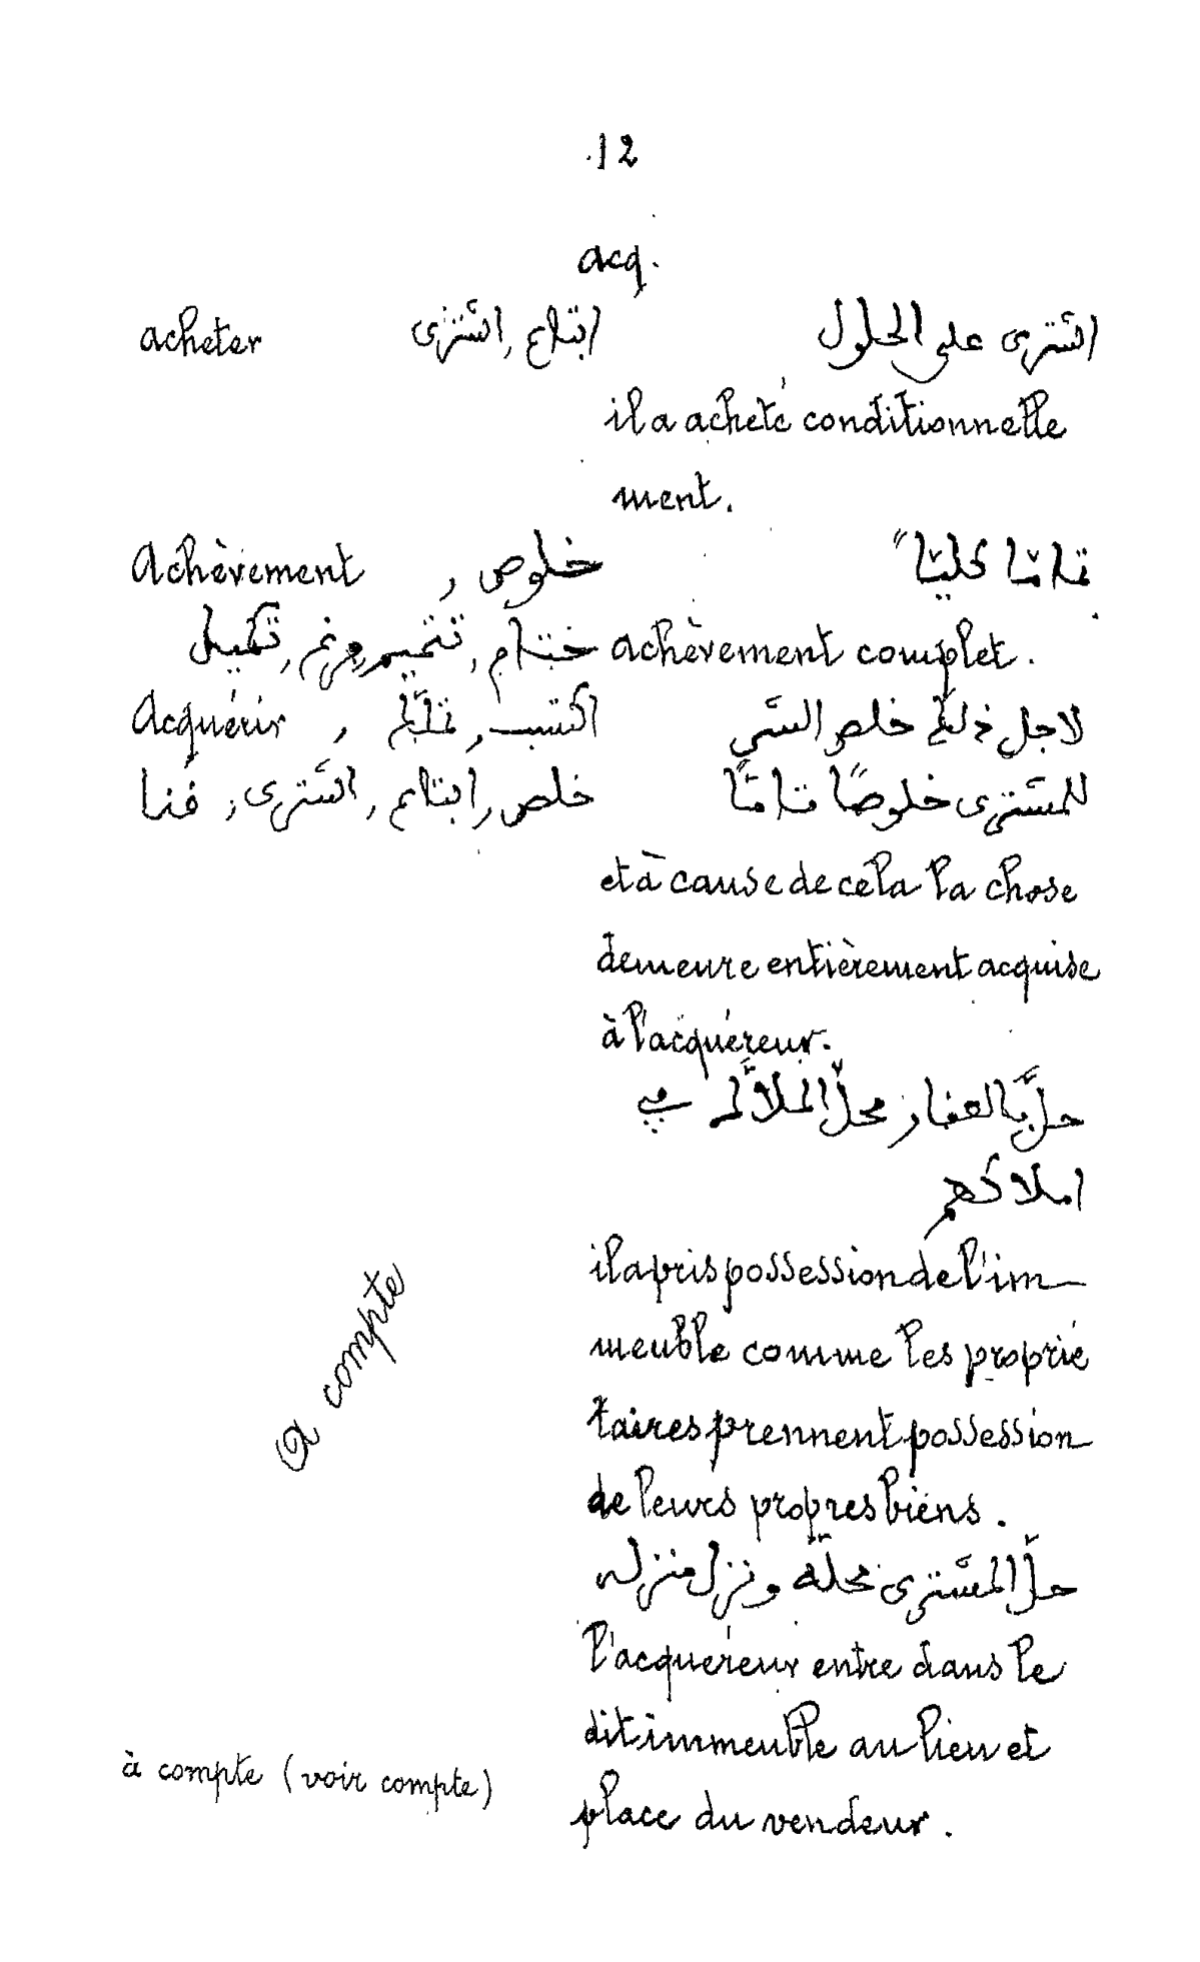 12
acq.
acheter ابتاع, اشترى اشترى على الحلول
il a acheté conditionnelle
ment.
Achèvement خلوص, تمامًا كليًّا
ختام, تتميم, وتم, تكميل achèvement complet.
Acquérir اكتسب, تملّك, لاجل ذلك خلص الشي
خلص, ابتاع, اشترى, فنا للمشترى خلوصًا تامًّا
et à cause de cela la chose
demeure entièrement acquise
à l'acquéreur.
حلَّ بالعقار محلّ الملاَّك في
املاكهم
il a pris possession de l'im-
meuble comme les proprié
taires prennent possession
de leurs propres biens.
A compte
حلّ المشترى محلّه ونزل منزله
l'acquéreur entre dans le
dit immeuble au lieu et
à compte (voir compte) place du vendeur.